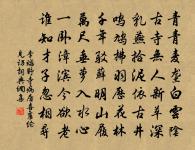 青青麥壟白雲陰
古寺無人新草深
乳燕拾泥依古井
鳴鳩拂羽歷花林
千年駁蘚明山履
萬尺垂蘿入水心
一臥漳濱今欲老
誰知才子忽相尋
李端野寺病居喜盧綸
見訪